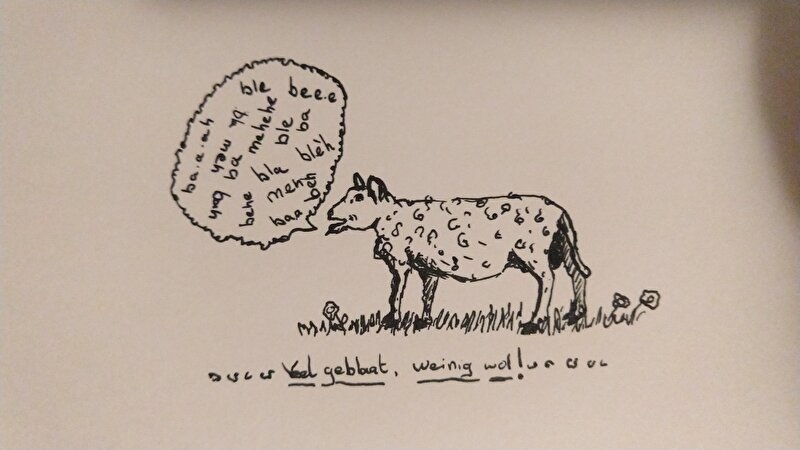 ble be.e.e
ba.a.ah meh ba mehehe ble ba
behe bla bleh
meh
baa beh
Veel geblaat, weinig wol!